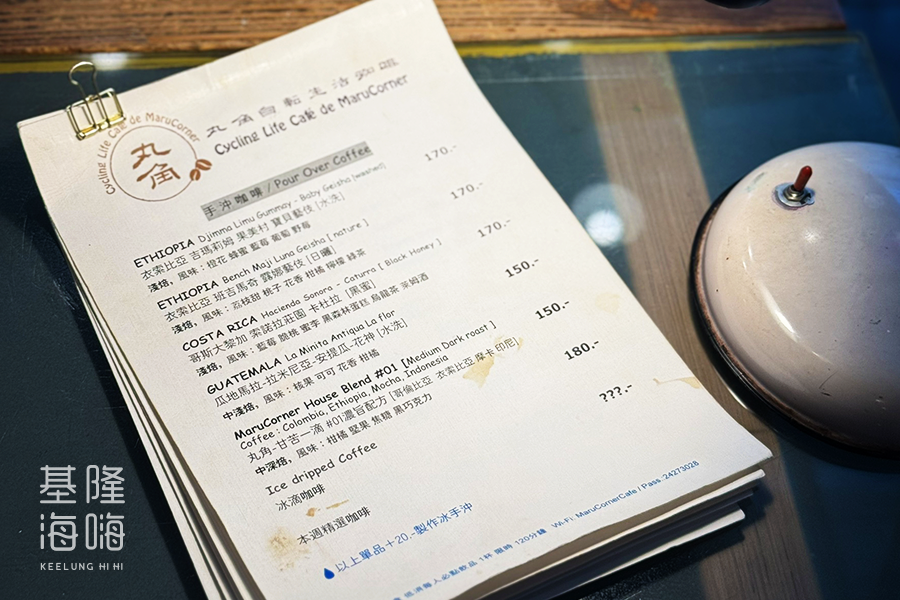 丸角自転生活珈琲
Cycling Life Café de MaruCorner
Cycling Life Café de MaruCorner
丸角
手沖咖啡 / Pour Over Coffee
ETHIOPIA Djimma Limu Gummay - Baby Geisha [washed] 170.-
衣索比亞 吉瑪莉姆 果美村 寶貝藝伎 [水洗]
淺焙，風味：橙花 蜂蜜 藍莓 葡萄 野莓
ETHIOPIA Bench Maji Luna Geisha [ nature ] 170.-
衣索比亞 班吉馬奇 露娜藝伎 [日曬]
淺焙，風味：荔枝甜 桃子 花香 柑橘 檸檬 綠茶
COSTA RICA Hacienda Sonora - Caturra [ Black Honey ] 170.-
哥斯大黎加 索諾拉莊園 卡杜拉 [黑蜜]
淺焙，風味：藍莓 脆桃 蜜李 黑森林蛋糕 烏龍茶 萊姆酒
GUATEMALA La Minita Antiqua La flor 150.-
瓜地馬拉-拉米尼亞-安提瓜-花神 [水洗]
中淺焙，風味：核果 可可 花香 柑橘
MaruCorner House Blend #01 [Medium Dark roast ] 150.-
Coffee : Colombia, Ethiopia, Mocha, Indonesia
丸角-甘苦一滴 #01濃旨配方 [哥倫比亞 衣索比亞 摩卡 印尼]
中深焙，風味：柑橘 堅果 焦糖 黑巧克力
Ice dripped Coffee 180.-
冰滴咖啡
本週精選咖啡 ???.-
以上單品＋20.-製作冰手沖
低消每人必點飲品 1杯 限時 120分鐘 Wi-Fi: MaruCornerCafe / Pass :24273028
基隆
海嗨
KEELUNG HI HI